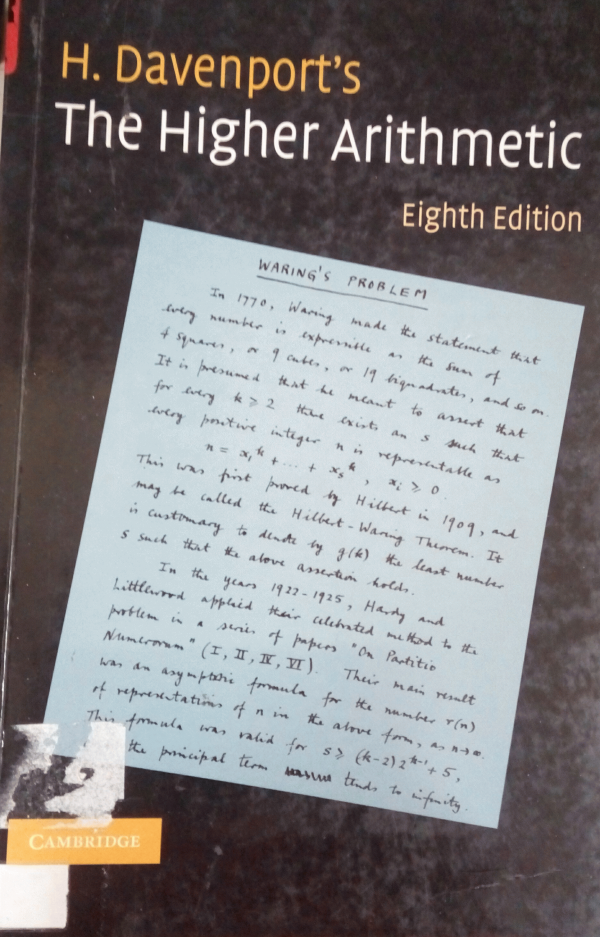 H. Davenport's
The Higher Arithmetic
Eighth Edition
WARING'S PROBLEM
In 1770, Waring made the statement that
every number is expressible as the sum of
4 squares, or 9 cubes, or 19 biquadrates, and so on.
It is presumed that he meant to assert that
for every k ≥ 2 there exists an s such that
every positive integer n is representable as
n = x₁ᵏ + ... + xₛᵏ, xᵢ ≥ 0.
This was first proved by Hilbert in 1909, and
may be called the Hilbert-Waring Theorem. It
is customary to denote by g(k) the least number
s such that the above assertion holds.
In the years 1922-1925, Hardy and
Littlewood applied their celebrated method to the
problem in a series of papers "On Partitio
Numerorum" (I, II, IV, VI). Their main result
was an asymptotic formula for the number r(n)
of representations of n in the above form, as n→∞.
This formula was valid for s ≥ (k-2)2ᵏ⁻¹ + 5,
the principal term tends to infinity.
CAMBRIDGE